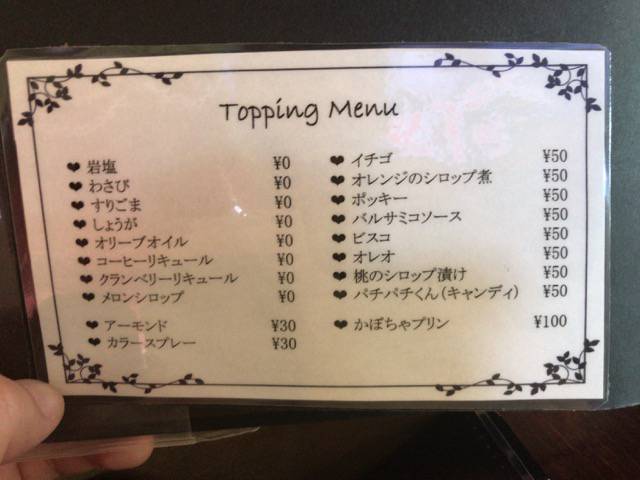 Topping Menu
❤ 岩塩 ¥0
❤ わさび ¥0
❤ すりごま ¥0
❤ しょうが ¥0
❤ オリーブオイル ¥0
❤ コーヒーリキュール ¥0
❤ クランベリーリキュール ¥0
❤ メロンシロップ ¥0
❤ アーモンド ¥30
❤ カラースプレー ¥30
❤ イチゴ ¥50
❤ オレンジのシロップ煮 ¥50
❤ ポッキー ¥50
❤ バルサミコソース ¥50
❤ ビスコ ¥50
❤ オレオ ¥50
❤ 桃のシロップ漬け ¥50
❤ パチパチくん(キャンディ) ¥50
❤ かぼちゃプリン ¥100